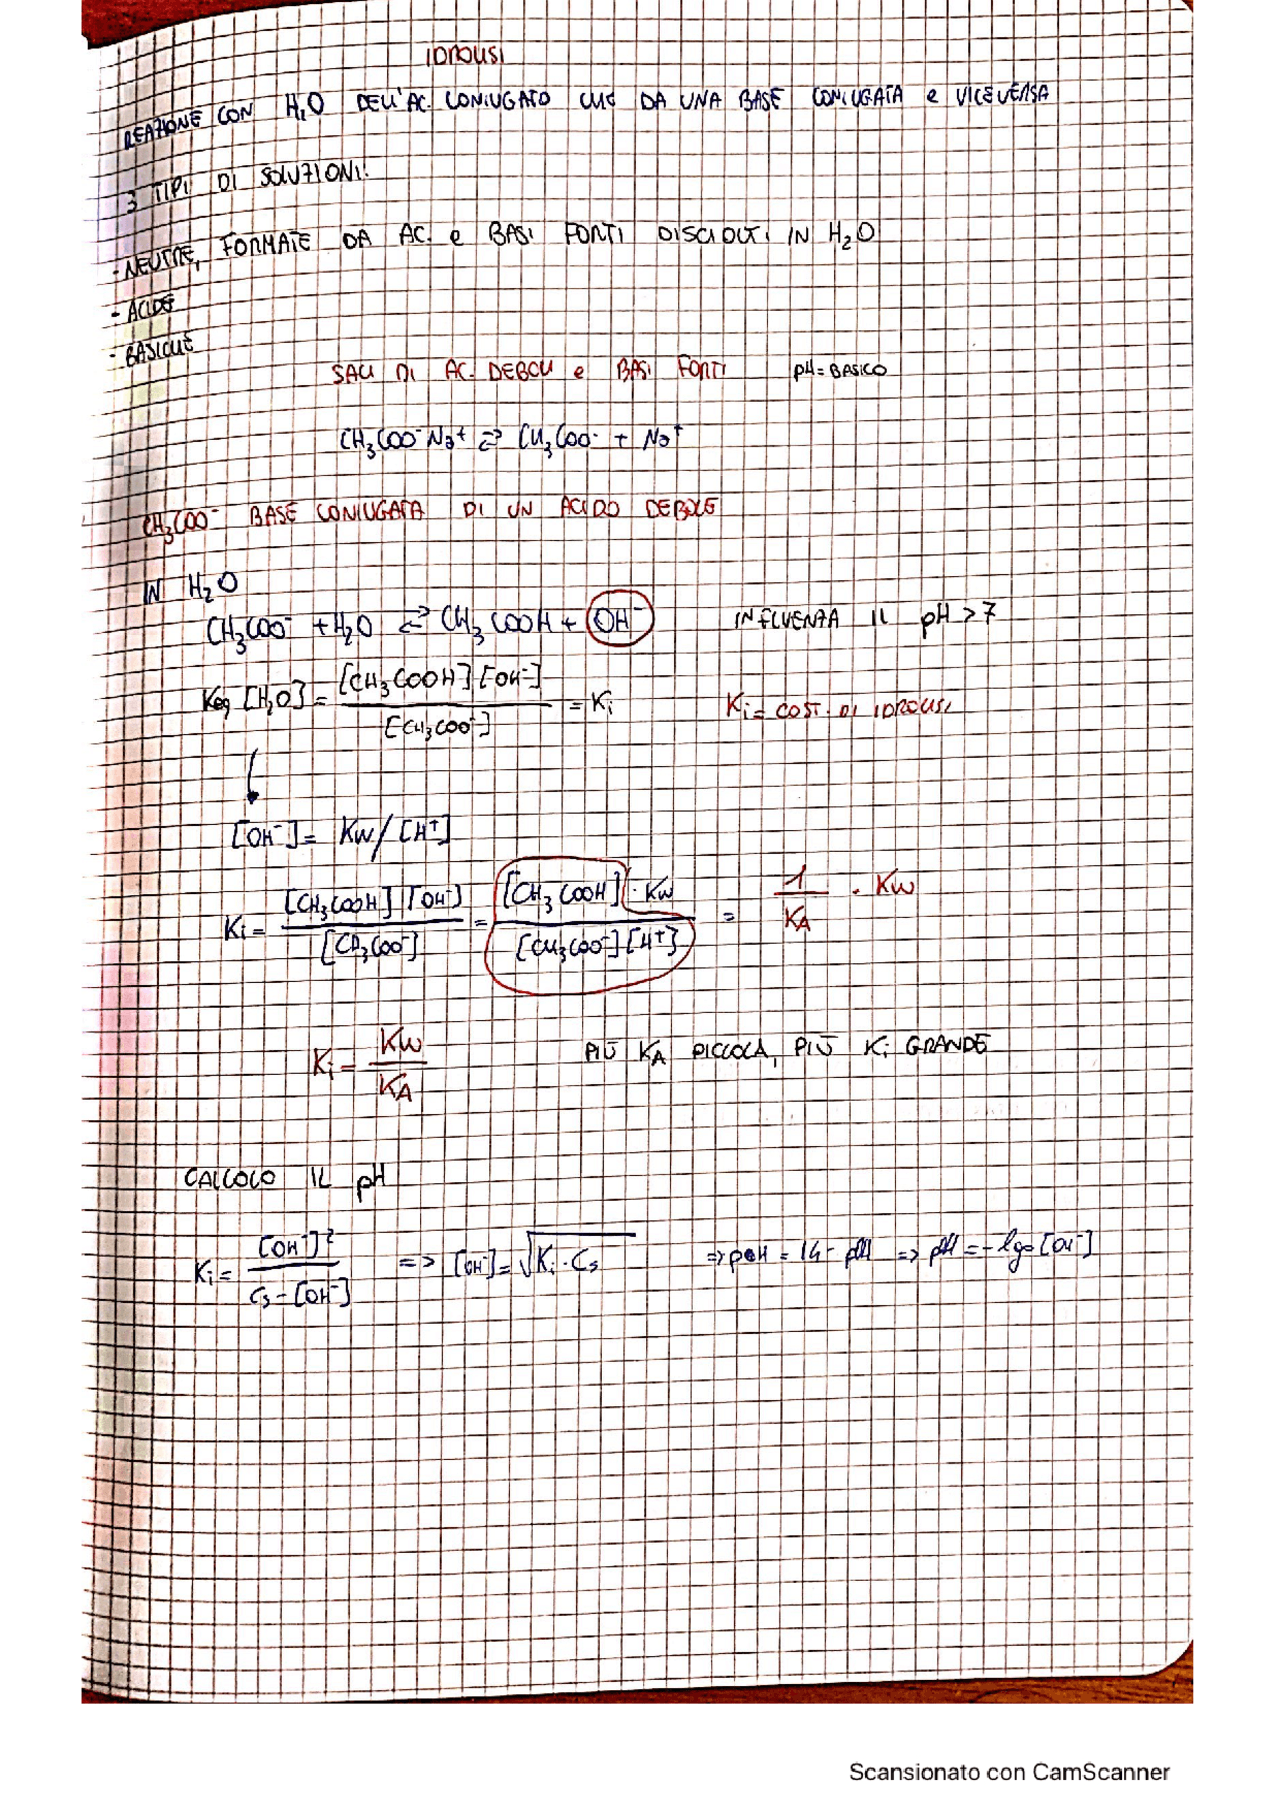 IDROLISI
REAZIONE CON H₂O DELL'AC. CONIUGATO CHE DA UNA BASE CONIUGATA e VICEVERSA
3 TIPI DI SOLUZIONI:
- NEUTRE, FORMATE DA AC. e BASI FORTI DISCIOLTI IN H₂O
- ACIDE
- BASICHE
SALI DI AC. DEBOLI e BASI FORTI pH = BASICO
CH₃COO⁻Na⁺ ⇄ CH₃COO⁻ + Na⁺
CH₃COO⁻ BASE CONIUGATA DI UN ACIDO DEBOLE
IN H₂O
CH₃COO⁻ + H₂O ⇄ CH₃COOH + OH⁻ INFLUENZA IL pH > 7
Keq [H₂O] = [CH₃COOH][OH⁻] / [CH₃COO⁻] = Ki Ki = COST. DI IDROLISI
[OH⁻] = KW/[H⁺]
Ki = [CH₃COOH][OH⁻] / [CH₃COO⁻] = [CH₃COOH] · KW / [CH₃COO⁻][H⁺] = 1/KA · KW
Ki = KW/KA PIÙ KA PICCOLA, PIÙ Ki GRANDE
CALCOLO IL pH
Ki = [OH⁻]² / Cs - [OH⁻] => [OH⁻] = √Ki · Cs => pOH = 14 - pH => pH = -log [OH⁻]
Scansionato con CamScanner